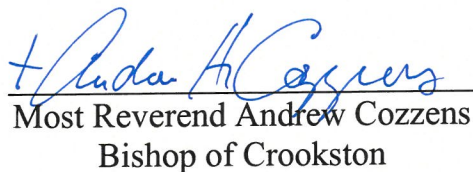 + Andrew H Cozzens
Most Reverend Andrew Cozzens
Bishop of Crookston